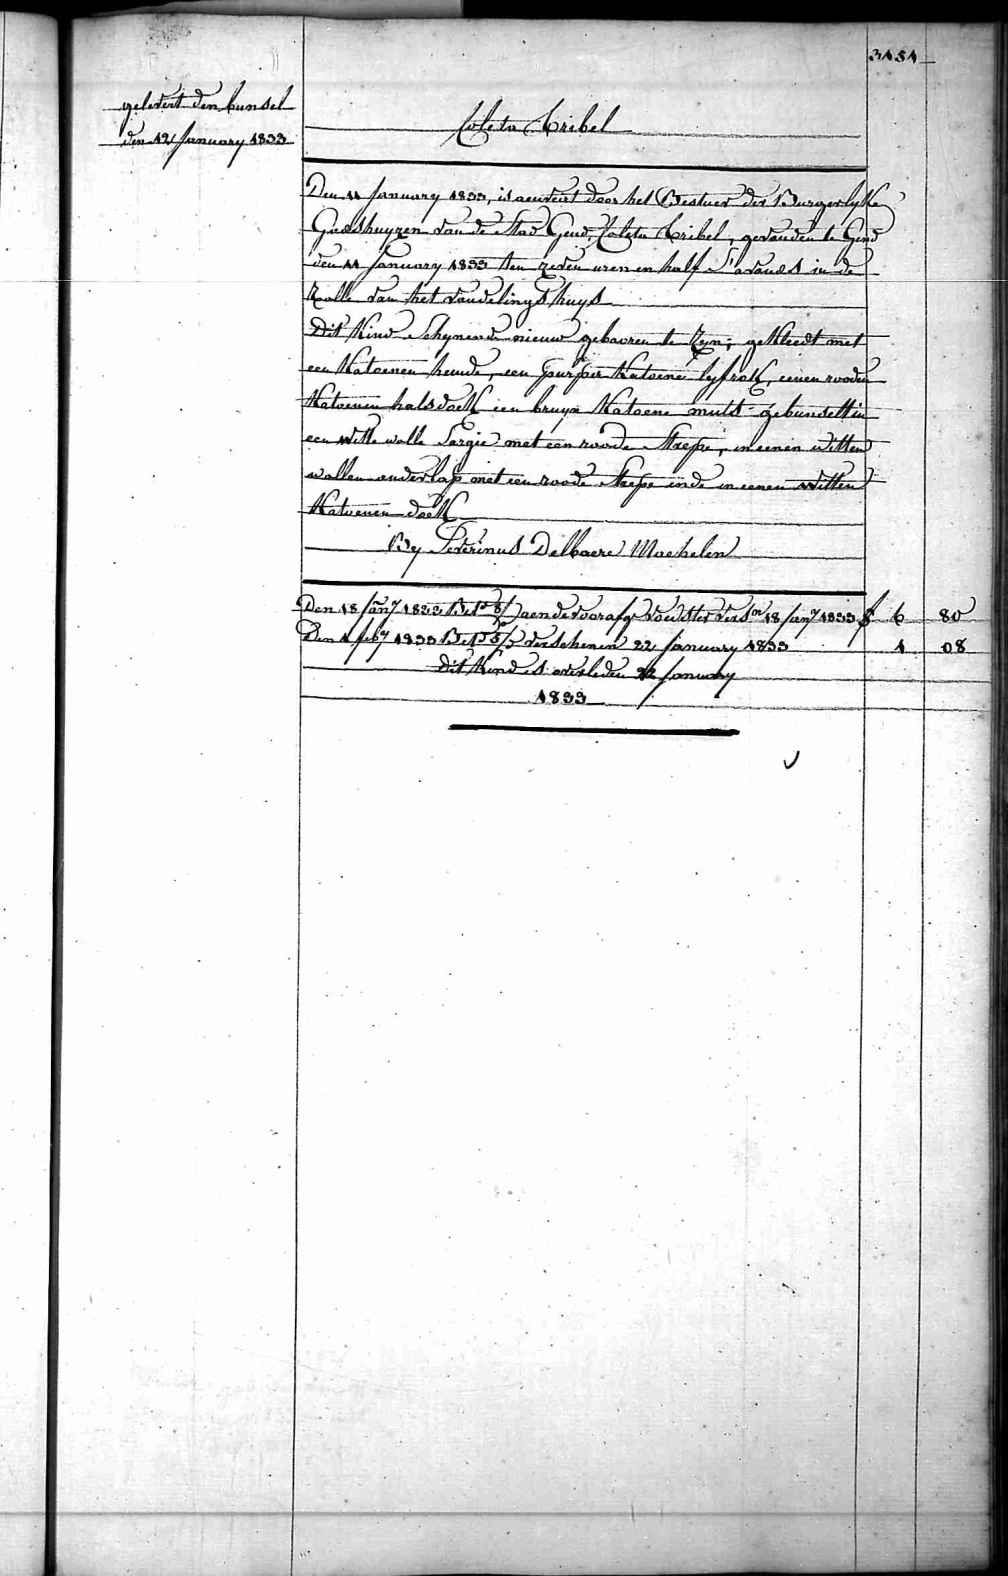 3151
gelevert den bunsel
den 12 January 1833
Coleta Cribel
Den 11 January 1833, is aenveirt door het Bestuer der Burgerlyke
Godshuyzen van de Stad Gend, Coleta Cribel, gevonden te Gend
den 11 January 1833 ten zeven uren en half S'avonds in de
Rolle van het vondelings huys
Dit Kind Schynende nieuw gebooren te Zyn, gekleedt met
een Katoenen hemde, een purper Katoene lyfrok, eenen rooden
Katoenen halsdoek een bruyn Katoene muts gebunselt in
een witte wolle Sargie met een roode Strepe, in eenen witten
wollen onderlap met een roode Strepe ende in eenen Witten
Katoenen doek
By Severinus Delbaere Machelen
Den 18 Jany 1833 aen de voorafge voedster vers 18 Jany 1833 f 6 80
Den 1 feby 1833 verschenen 22 January 1833 1 08
Dit Kind is overleden 22 January
1833